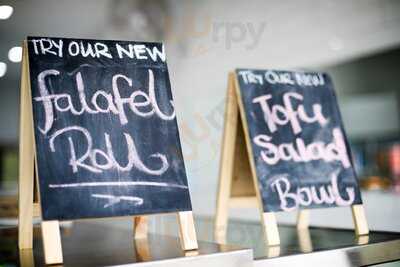 TRY OUR NEW
Falafel
Roll
TRY OUR NEW
Tofu
Salad
Bowl